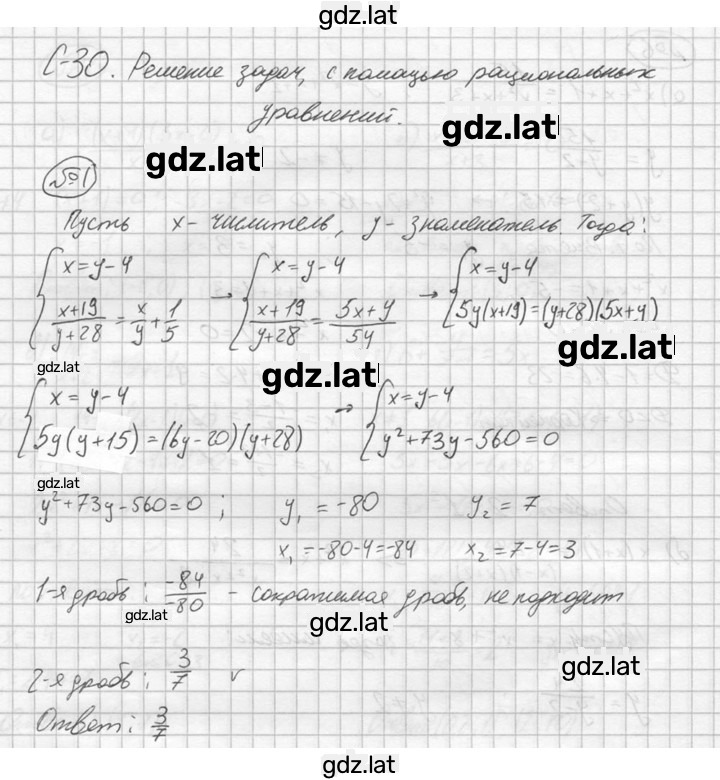 gdz.lat
С-30. Решение задач, с помощью рациональных
уравнений.
gdz.lat
gdz.lat
№1
Пусть x - числитель, y - знаменатель. Тогда:
{ x=y-4 → { x=y-4 → { x=y-4
(x+19)/(y+28) = x/y + 1/5 (x+19)/(y+28) = (5x+y)/5y 5y(x+19)=(y+28)(5x+y)
gdz.lat
gdz.lat
gdz.lat
{ x=y-4 → { x=y-4
5y(y+15)=(6y-20)(y+28) y²+73y-560=0
gdz.lat
y²+73y-560=0 ; y₁ = -80 y₂ = 7
x₁=-80-4=-84 x₂=7-4=3
1-я дробь: -84/-80 - сократимая дробь, не подходит
gdz.lat
gdz.lat
gdz.lat
2-я дробь: 3/7 v
Ответ: 3/7
gdz.lat